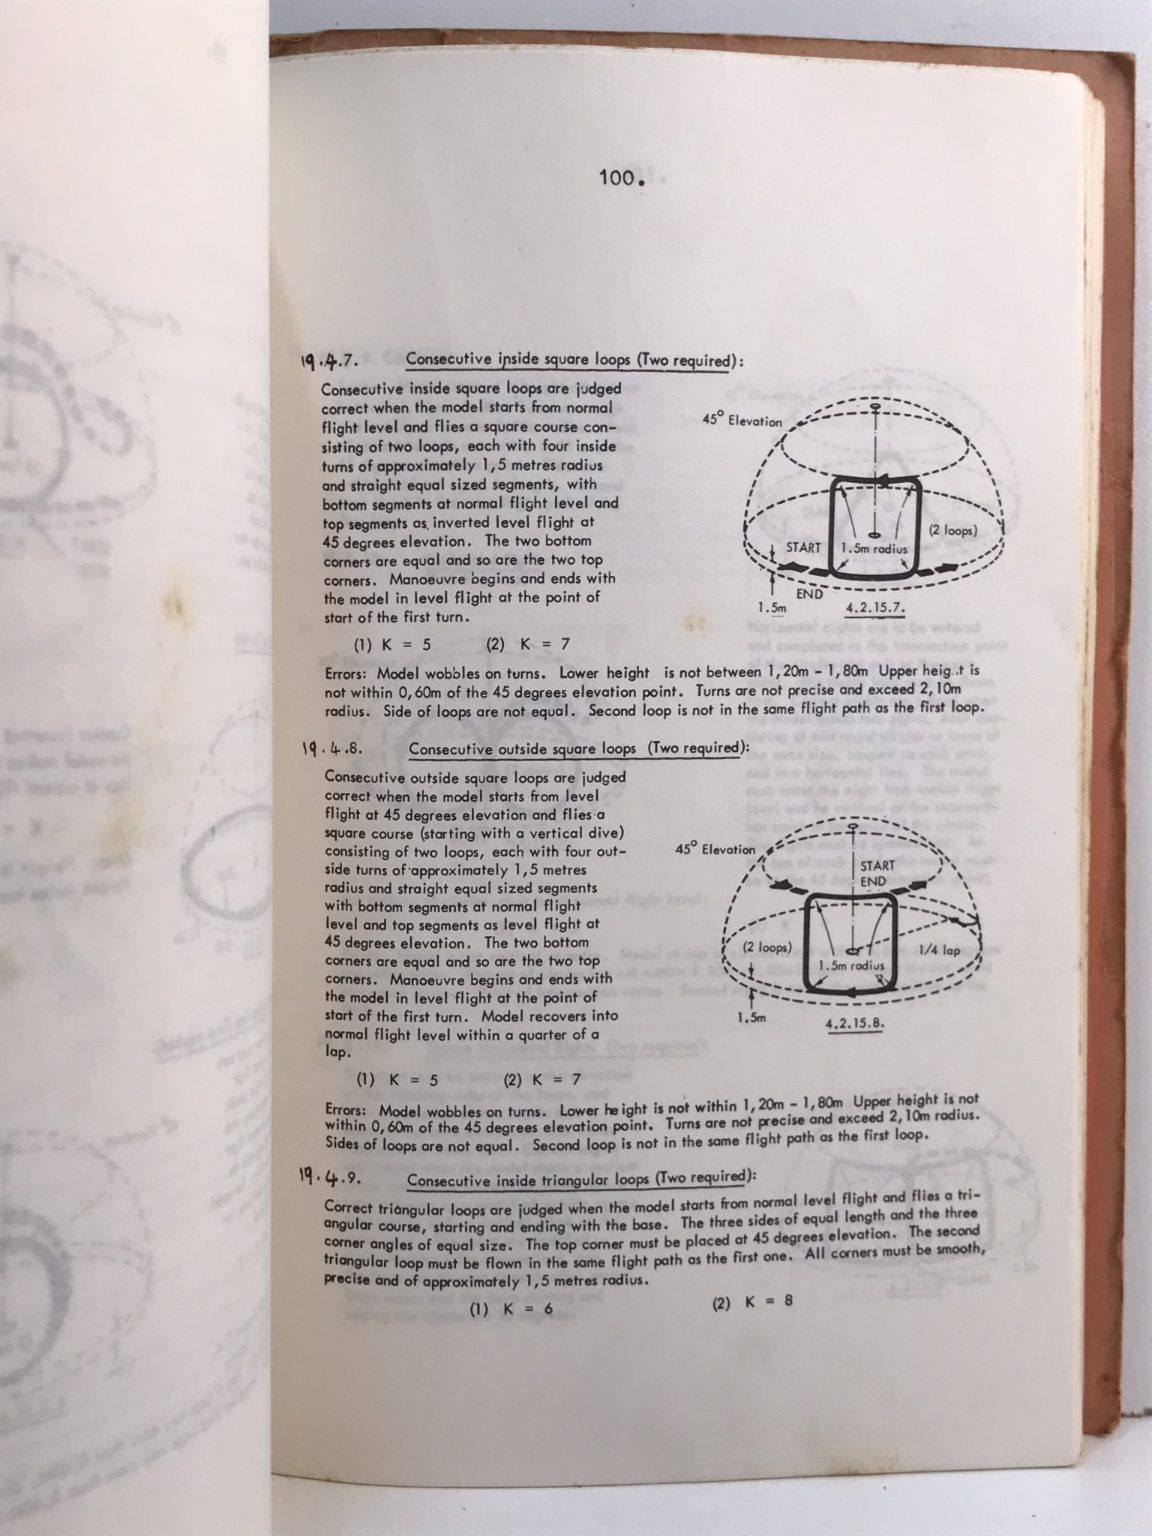 100.
19.4.7. Consecutive inside square loops (Two required):
Consecutive inside square loops are judged
correct when the model starts from normal
flight level and flies a square course con-
sisting of two loops, each with four inside
turns of approximately 1,5 metres radius
and straight equal sized segments, with
bottom segments at normal flight level and
top segments as inverted level flight at
45 degrees elevation. The two bottom
corners are equal and so are the two top
corners. Manoeuvre begins and ends with
the model in level flight at the point of
start of the first turn.
45° Elevation
(2 loops)
START
1.5m radius
END
1.5m
4.2.15.7.
(1) K = 5 (2) K = 7
Errors: Model wobbles on turns. Lower height is not between 1,20m - 1,80m Upper heig..t is
not within 0,60m of the 45 degrees elevation point. Turns are not precise and exceed 2,10m
radius. Side of loops are not equal. Second loop is not in the same flight path as the first loop.
19.4.8. Consecutive outside square loops (Two required):
Consecutive outside square loops are judged
correct when the model starts from level
flight at 45 degrees elevation and flies a
square course (starting with a vertical dive)
consisting of two loops, each with four out-
side turns of approximately 1,5 metres
radius and straight equal sized segments
with bottom segments at normal flight
level and top segments as level flight at
45 degrees elevation. The two bottom
corners are equal and so are the two top
corners. Manoeuvre begins and ends with
the model in level flight at the point of
start of the first turn. Model recovers into
normal flight level within a quarter of a
lap.
45° Elevation
START
END
(2 loops)
1/4 lap
1.5m radius
1.5m
4.2.15.8.
(1) K = 5 (2) K = 7
Errors: Model wobbles on turns. Lower height is not within 1,20m - 1,80m Upper height is not
within 0,60m of the 45 degrees elevation point. Turns are not precise and exceed 2,10m radius.
Sides of loops are not equal. Second loop is not in the same flight path as the first loop.
19.4.9. Consecutive inside triangular loops (Two required):
Correct triangular loops are judged when the model starts from normal level flight and flies a tri-
angular course, starting and ending with the base. The three sides of equal length and the three
corner angles of equal size. The top corner must be placed at 45 degrees elevation. The second
triangular loop must be flown in the same flight path as the first one. All corners must be smooth,
precise and of approximately 1,5 metres radius.
(1) K = 6 (2) K = 8